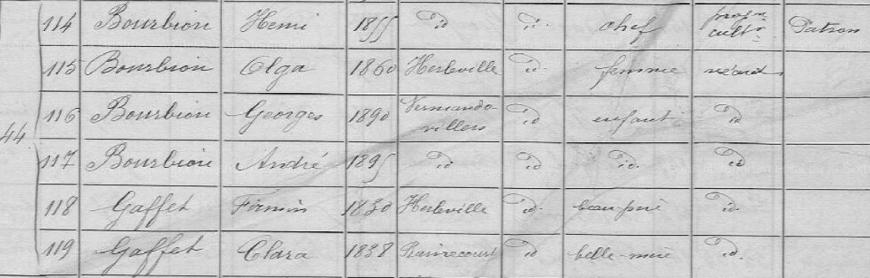 114 Bourbion Henri 1855 id id. chef prop.re cult.r Patron
115 Bourbion Olga 1860 Herleville id. femme néant
44 116 Bourbion Georges 1890 Vermando-villers id enfant id
117 Bourbion André 1895 id id id. id
118 Gaffet Firmin 1830 Herleville id. beau-père id.
119 Gaffet Clara 1838 Rainecourt id belle-mère id.